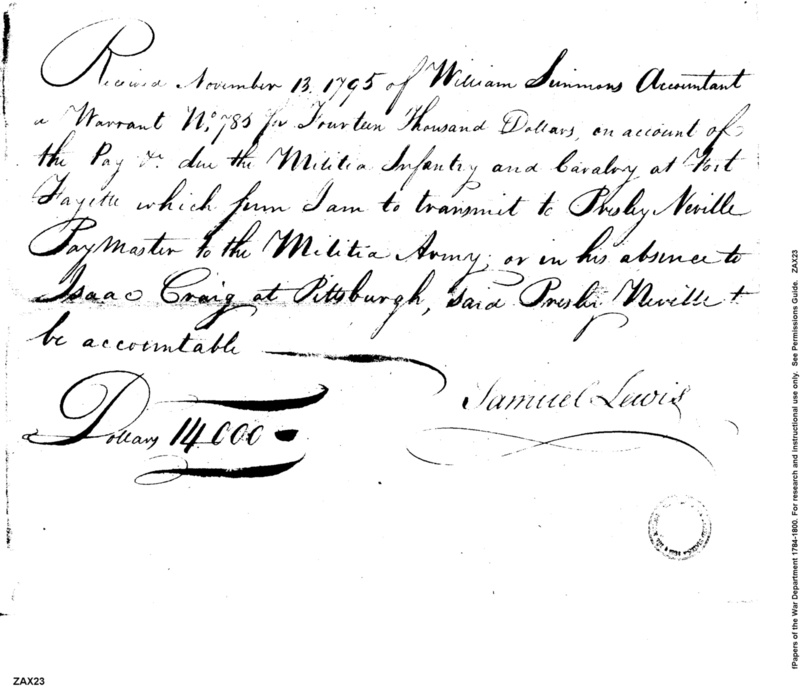 Received November 13, 1795 of William Simmons Accountant
a Warrant No. 785 for Fourteen Thousand Dollars, on account of
the Pay &c. due the Militia Infantry and Cavalry at Fort
Fayette which sum I am to transmit to Presley Neville
PayMaster to the Militia Army, or in his absence to
Isaac Craig at Pittsburgh, said Presley Neville to
be accountable
Dollars 14,000
Samuel Lewis
ZAX23
fPapers of the War Department 1784-1800. For research and instructional use only. See Permissions Guide. ZAX23